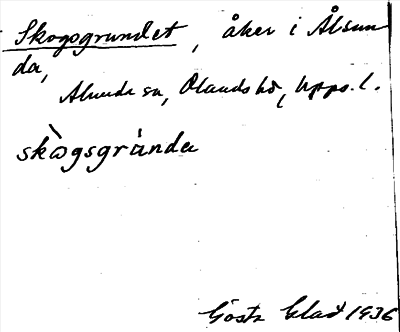 Skogsgrundet, åker i Ålsun
da,
Alunda sn, Olands hd, Upps. l.
skògsgrùnda
Gösta Glad 1936